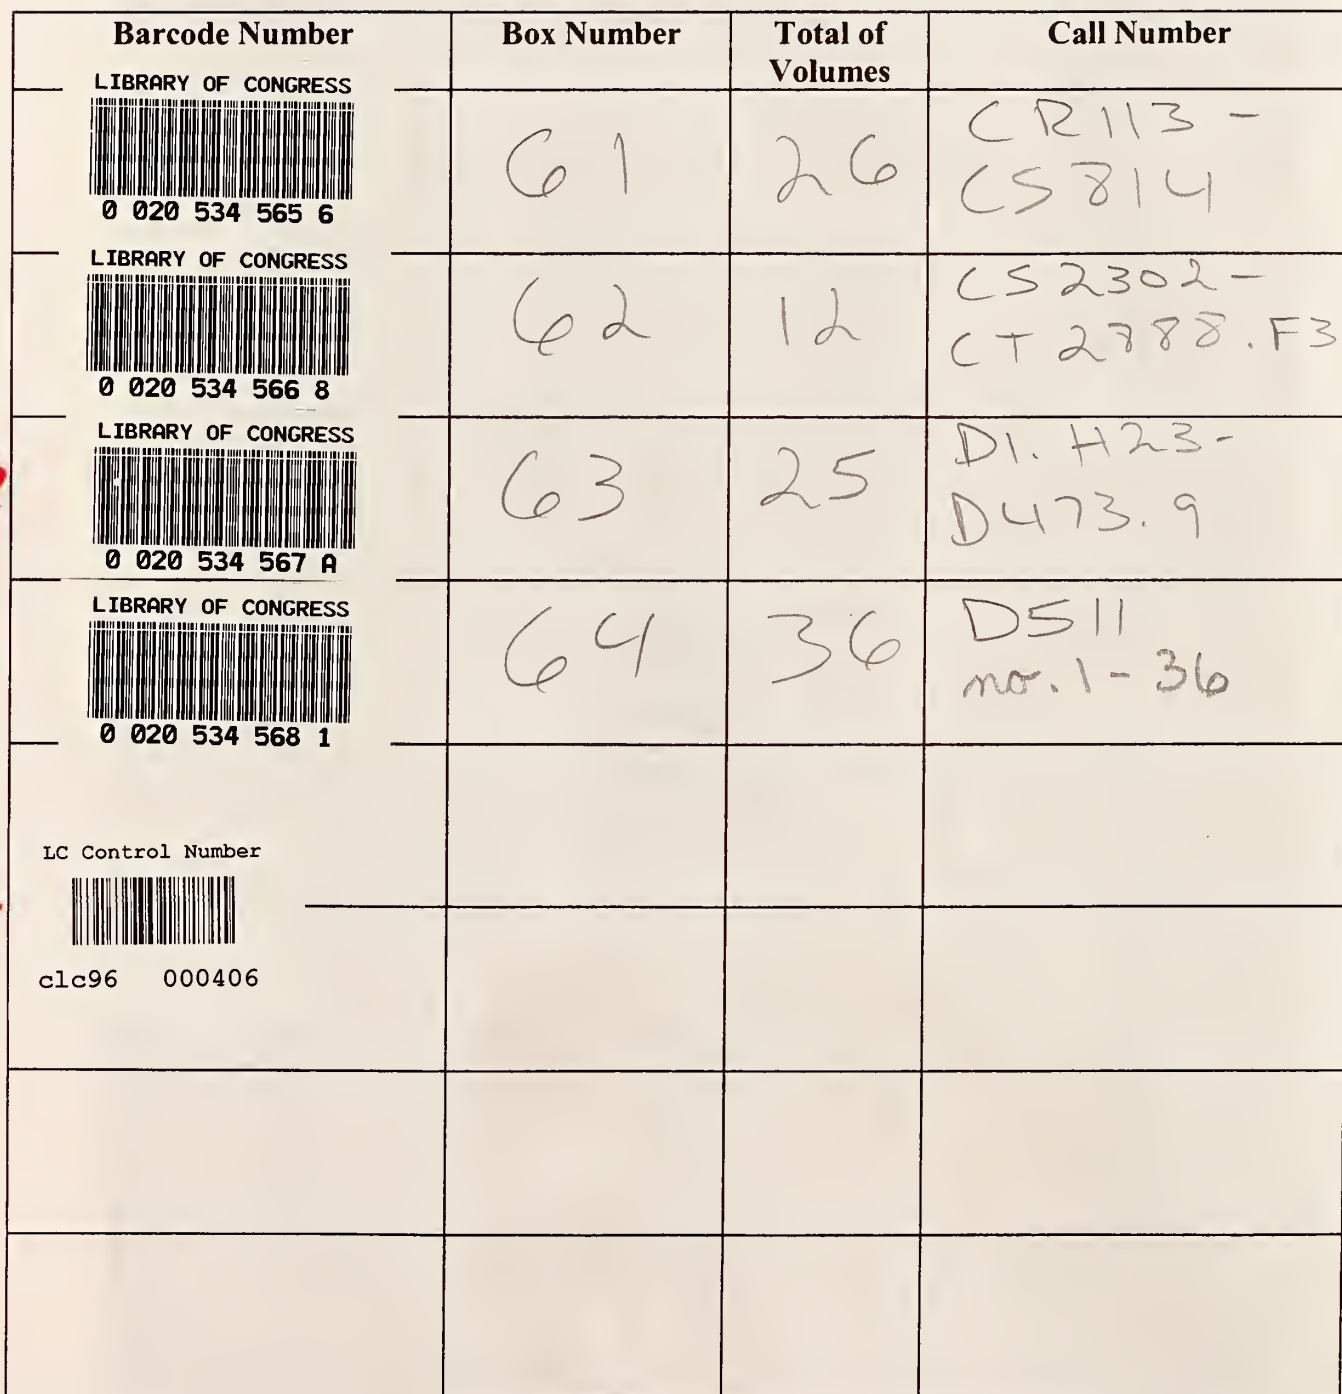 Barcode Number Box Number Total of Volumes Call Number
LIBRARY OF CONGRESS
0 020 534 565 6
61
26
CR113 -
CS814
LIBRARY OF CONGRESS
0 020 534 566 8
62
12
CS2302-
CT2888.F3
LIBRARY OF CONGRESS
0 020 534 567 A
63
25
D1.H23-
D473.9
LIBRARY OF CONGRESS
0 020 534 568 1
64
36
D511
no. 1 - 36
LC Control Number
clc96 000406